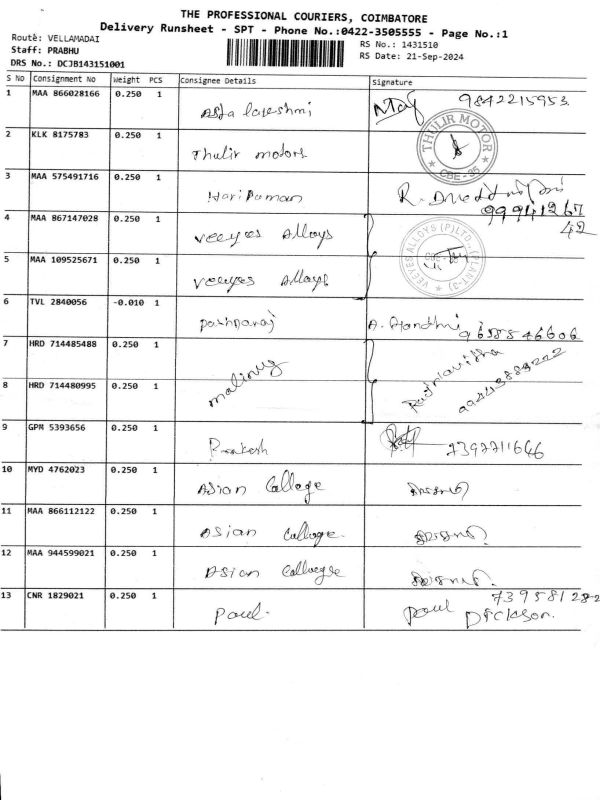 THE PROFESSIONAL COURIERS, COIMBATORE
Delivery Runsheet - SPT - Phone No.:0422-3505555 - Page No.:1
Route: VELLAMADAI
Staff: PRABHU
DRS No.: DCJB143151001
RS No.: 1431510
RS Date: 21-Sep-2024
S No Consignment No Weight PCS Consignee Details Signature
1 MAA 866028166 0.250 1 9842215953
2 KLK 8175783 0.250 1 Thulir motors THULIR MOTOR CBE-35
3 MAA 575491716 0.250 1 R. 99941267
42
4 MAA 867147028 0.250 1 veeyes Alloys VEEYES ALLOYS (P) LTD.,
5 MAA 109525671 0.250 1 veeyes Alloys
6 TVL 2840056 -0.010 1 A. 9658546606
7 HRD 714485488 0.250 1
8 HRD 714480995 0.250 1
9 GPM 5393656 0.250 1 Prakesh 7392711646
10 MYD 4762023 0.250 1 Asian College
11 MAA 866112122 0.250 1 Asian College.
12 MAA 944599021 0.250 1 Asian College
13 CNR 1829021 0.250 1 Paul. Paul 73958128-2
Dickson.